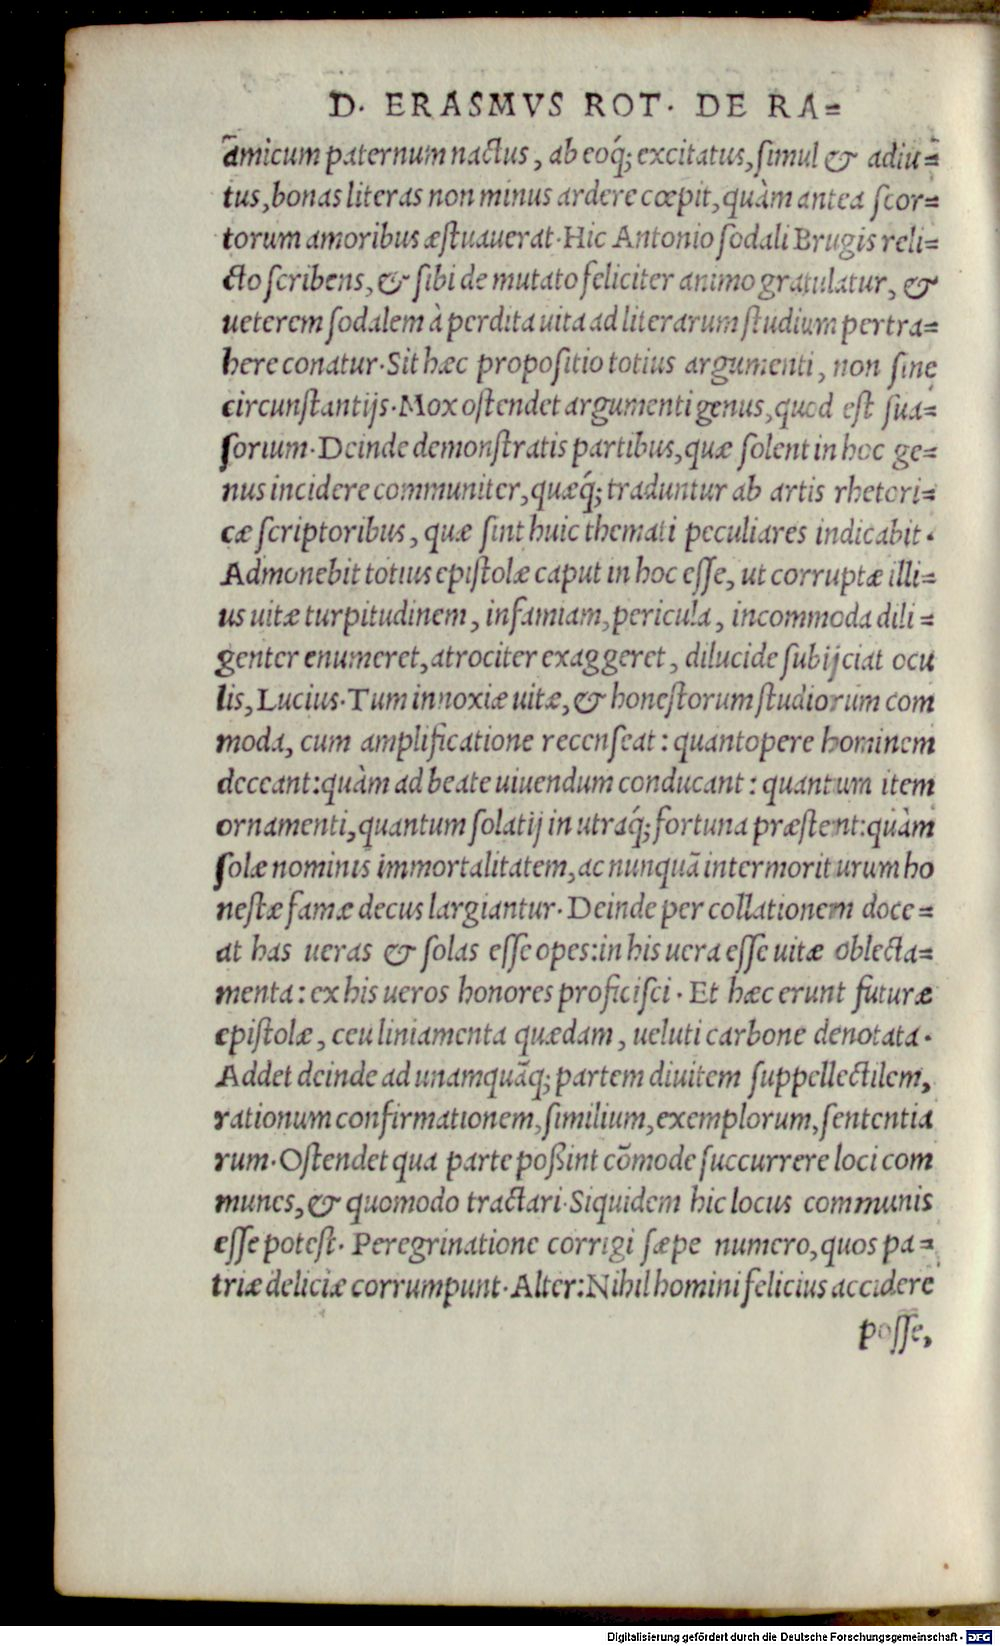 D. ERASMVS ROT. DE RA=
amicum paternum nactus, ab eoq́; excitatus, ſimul & adiu=
tus, bonas literas non minus ardere cœpit, quàm antea ſcor=
torum amoribus æſtuauerat. Hic Antonio ſodali Brugis reli=
cto ſcribens, & ſibi de mutato feliciter animo gratulatur, &
ueterem ſodalem à perdita uita ad literarum ſtudium pertra=
here conatur. Sit hæc propoſitio totius argumenti, non ſine
circunſtantijs. Mox oſtendet argumenti genus, quod eſt ſua=
ſorium. Deinde demonſtratis partibus, quæ ſolent in hoc ge=
nus incidere communiter, quæq́; traduntur ab artis rhetori=
cæ ſcriptoribus, quæ ſint huic themati peculiares indicabit.
Admonebit totius epiſtolæ caput in hoc eſſe, ut corruptæ illi=
us uitæ turpitudinem, infamiam, pericula, incommoda dili=
genter enumeret, atrociter exaggeret, dilucide ſubijciat ocu
lis, Lucius. Tum innoxiæ uitæ, & honeſtorum ſtudiorum com
moda, cum amplificatione recenſeat: quantopere hominem
deceant: quàm ad beate uiuendum conducant: quantum item
ornamenti, quantum ſolatij in utraq́; fortuna præſtent: quàm
ſolæ nominis immortalitatem, ac nunquā intermoriturum ho
neſtæ famæ decus largiantur. Deinde per collationem doce=
at has ueras & ſolas eſſe opes: in his uera eſſe uitæ oblecta=
menta: ex his ueros honores proficiſci. Et hæc erunt futuræ
epiſtolæ, ceu liniamenta quædam, ueluti carbone denotata.
Addet deinde ad unamquāq; partem diuitem ſuppellectilem,
rationum confirmationem, ſimilium, exemplorum, ſententia
rum. Oſtendet qua parte poßint cōmode ſuccurrere loci com
munes, & quomodo tractari. Siquidem hic locus communis
eſſe poteſt. Peregrinatione corrigi ſæpe numero, quos pa=
triæ deliciæ corrumpunt. Alter: Nihil homini felicius accidere
poſſe,
Digitalisierung gefördert durch die Deutsche Forschungsgemeinschaft - DFG